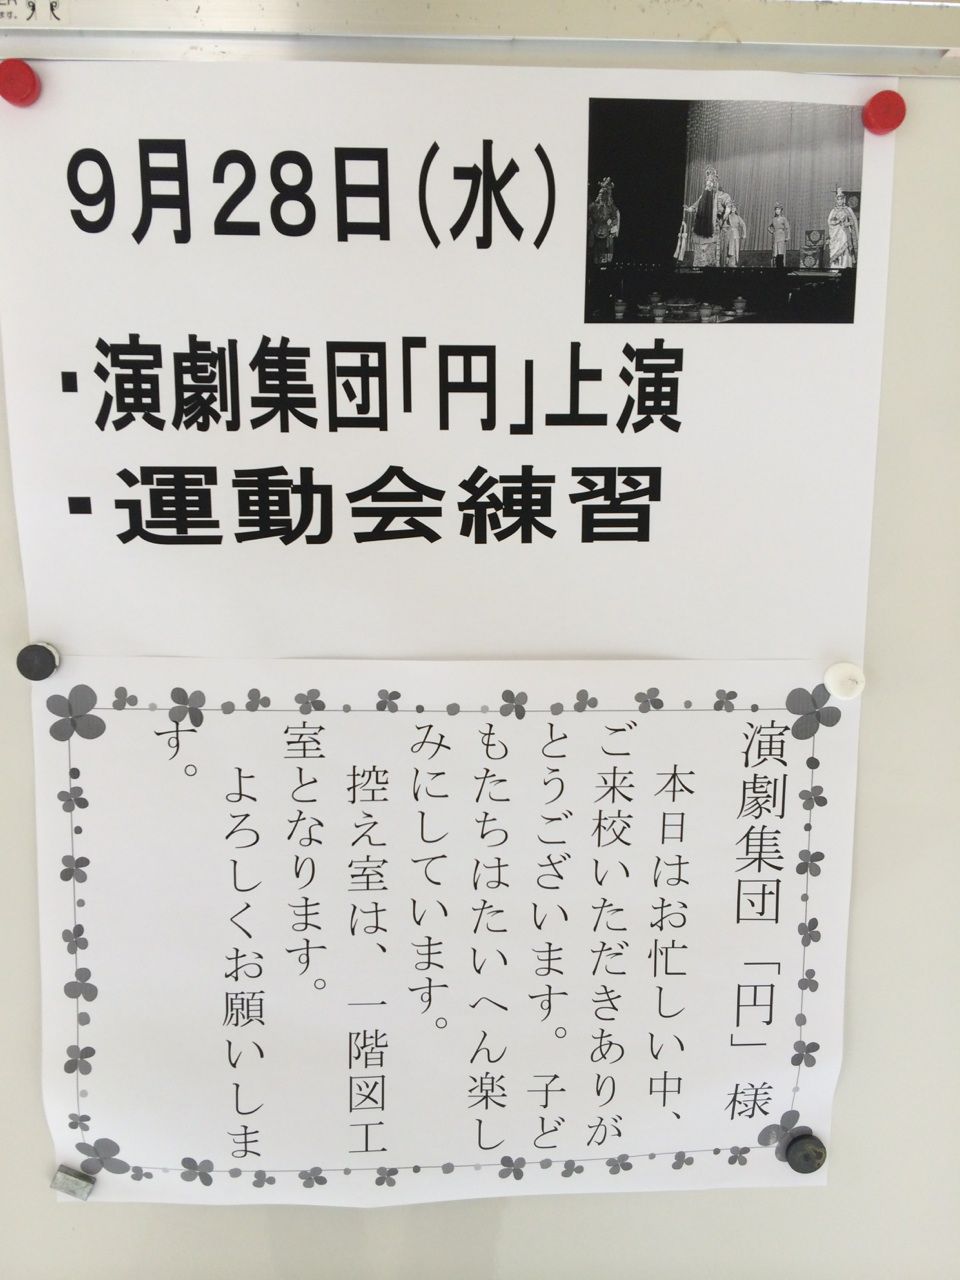 9月28日(水)
・演劇集団「円」上演
・運動会練習
演劇集団「円」様
本日はお忙しい中、
ご来校いただきありが
とうございます。子ど
もたちはたいへん楽し
みにしています。
控え室は、一階図工
室となります。
よろしくお願いしま
す。